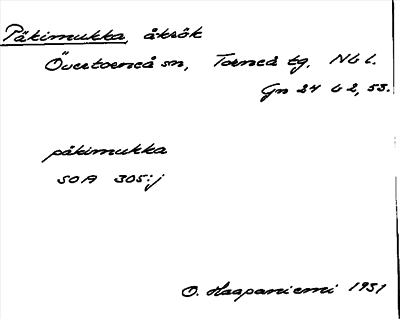 Päkimukka, åkrök
Övertorneå sn, Torneå tg. Nb l.
Gn 24 62, 53.
påkimukka
SOA 305:j
O. Haapaniemi 1931